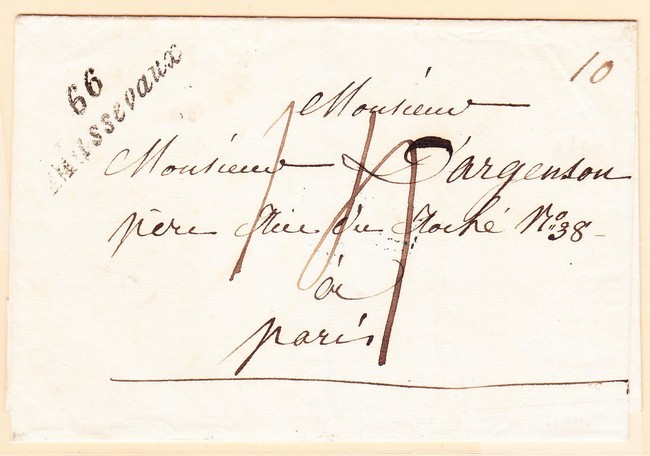 66
Massevaux
10
Monsieur
Monsieur D'argenson
père Rue du Roché No 38
à
paris